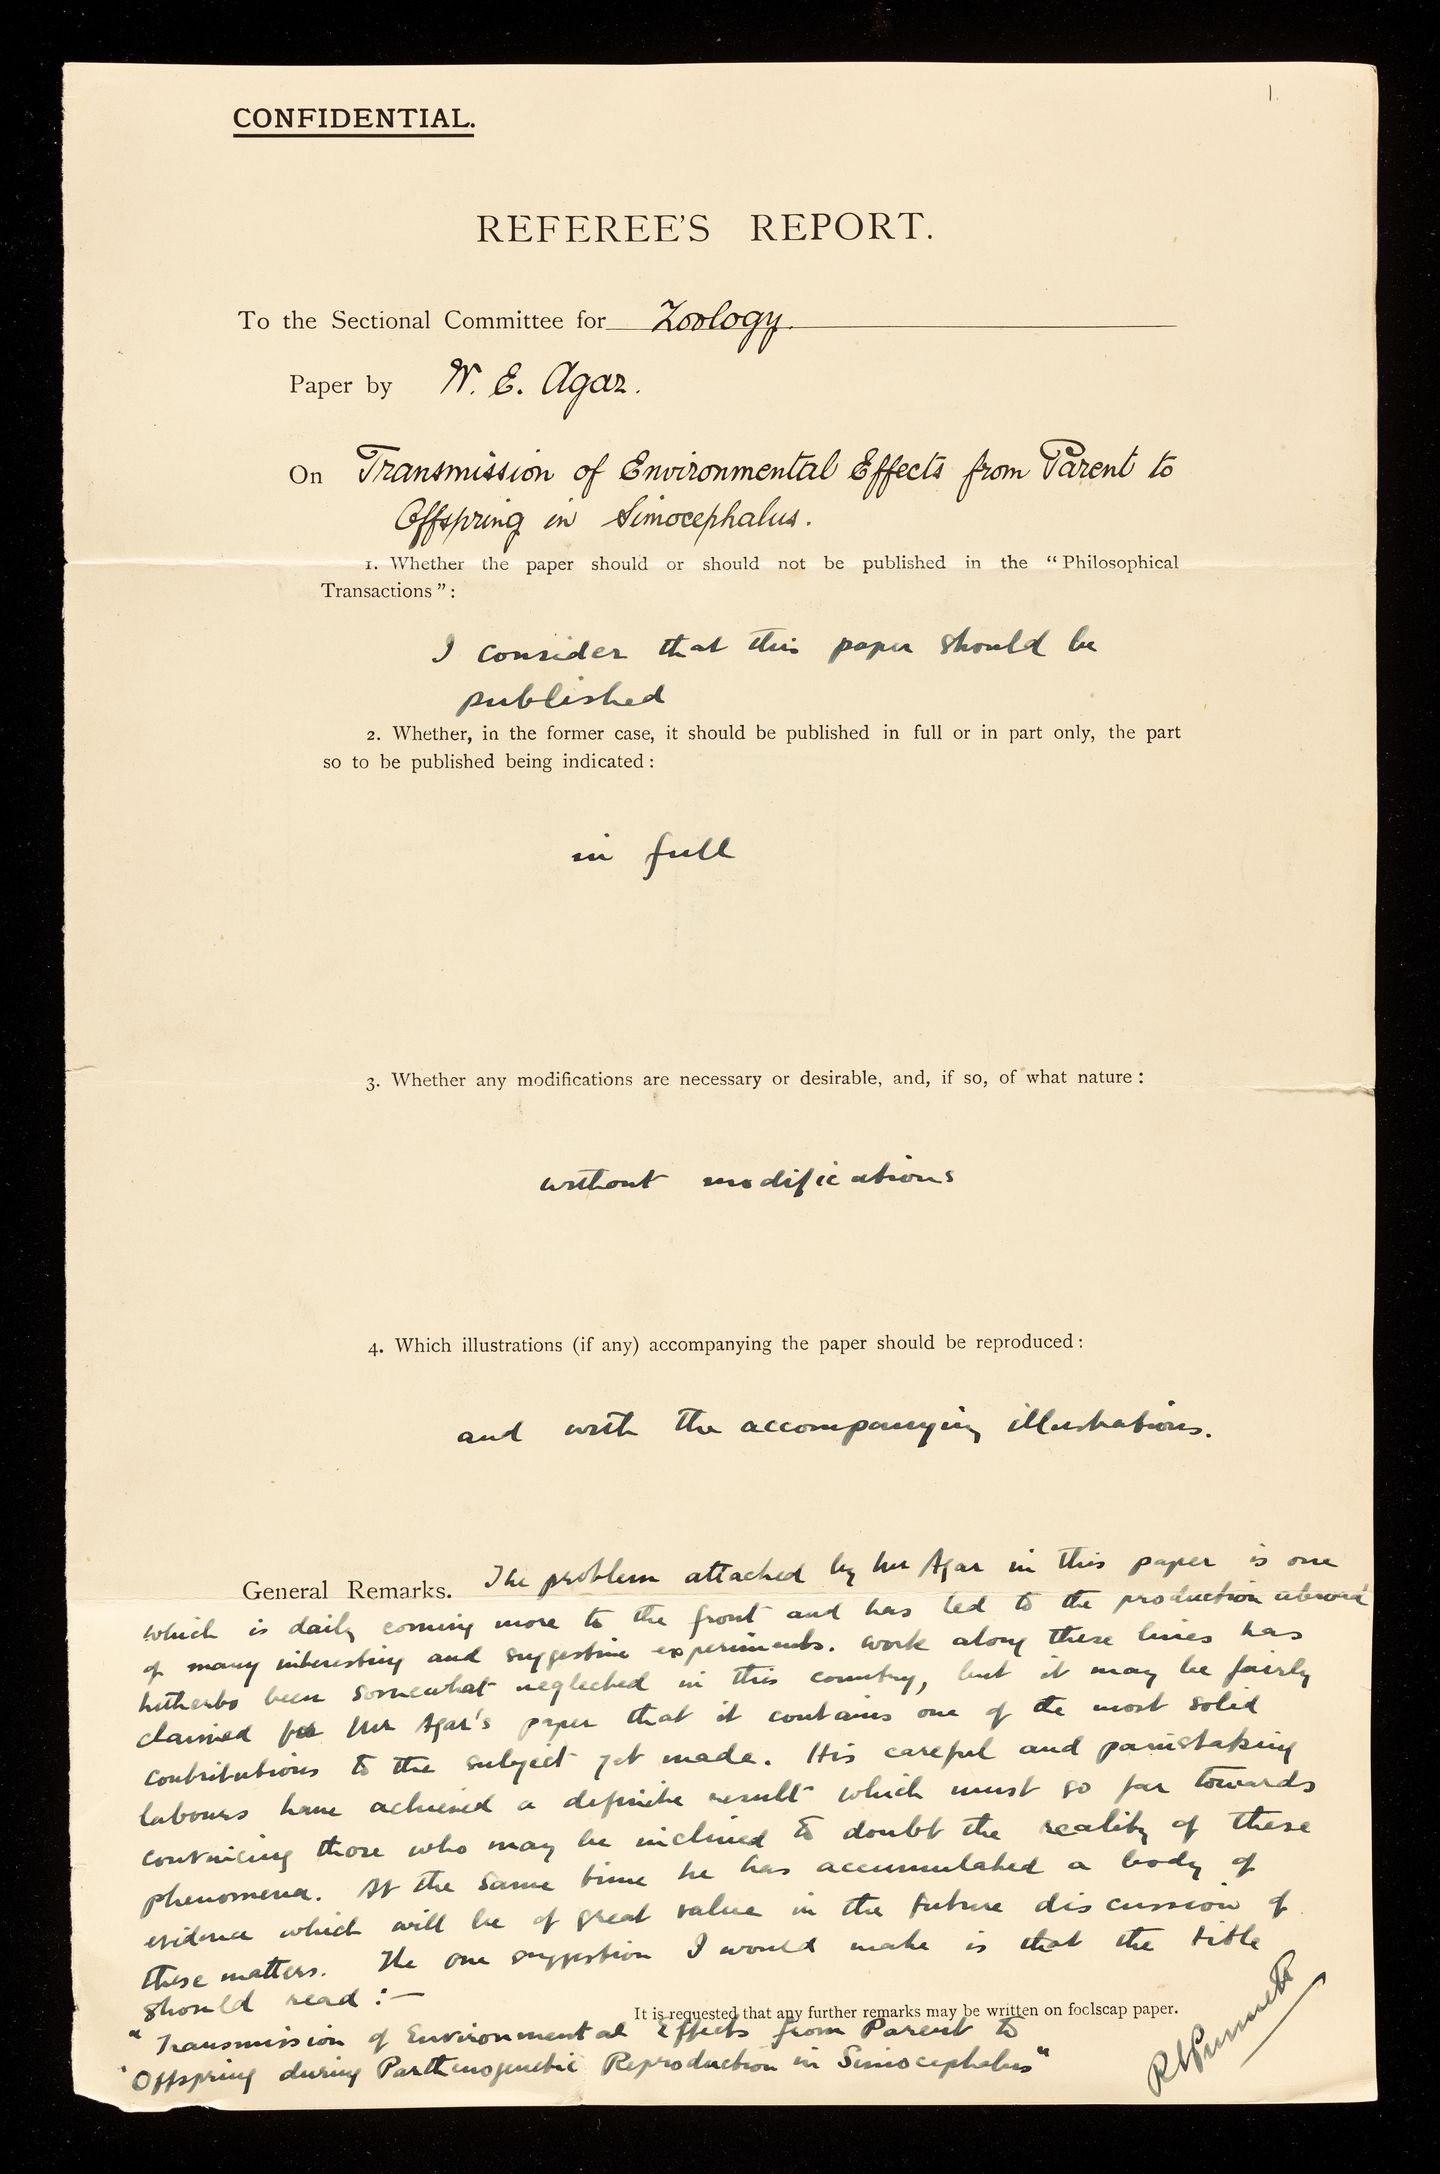 1.
CONFIDENTIAL.
REFEREE'S REPORT.
To the Sectional Committee for Zoology.
Paper by W. E. Agar.
On Transmission of Environmental Effects from Parent to
Offspring in Simocephalus.
1. Whether the paper should or should not be published in the "Philosophical
Transactions":
I consider that this paper should be
published
2. Whether, in the former case, it should be published in full or in part only, the part
so to be published being indicated:
in full
3. Whether any modifications are necessary or desirable, and, if so, of what nature:
without modifications
4. Which illustrations (if any) accompanying the paper should be reproduced:
and with the accompanying illustrations.
General Remarks. The problem attached by Mr Agar in this paper is one
which is daily coming more to the front and has led to the production abroad
of many interesting and suggestive experiments. Work along these lines has
hitherto been somewhat neglected in this country, but it may be fairly
claimed for Mr Agar's paper that it contains one of the most solid
contributions to the subject yet made. His careful and painstaking
labours have achieved a definite result which must go far towards
convincing those who may be inclined to doubt the reality of these
phenomena. At the same time he has accumulated a body of
evidence which will be of great value in the future discussion of
these matters. The one suggestion I would make is that the title
should read :—
It is requested that any further remarks may be written on foolscap paper.
"Transmission of Environmental Effects from Parent to
"Offspring during Parthenogenetic Reproduction in Simocephalus"
R C Punnett